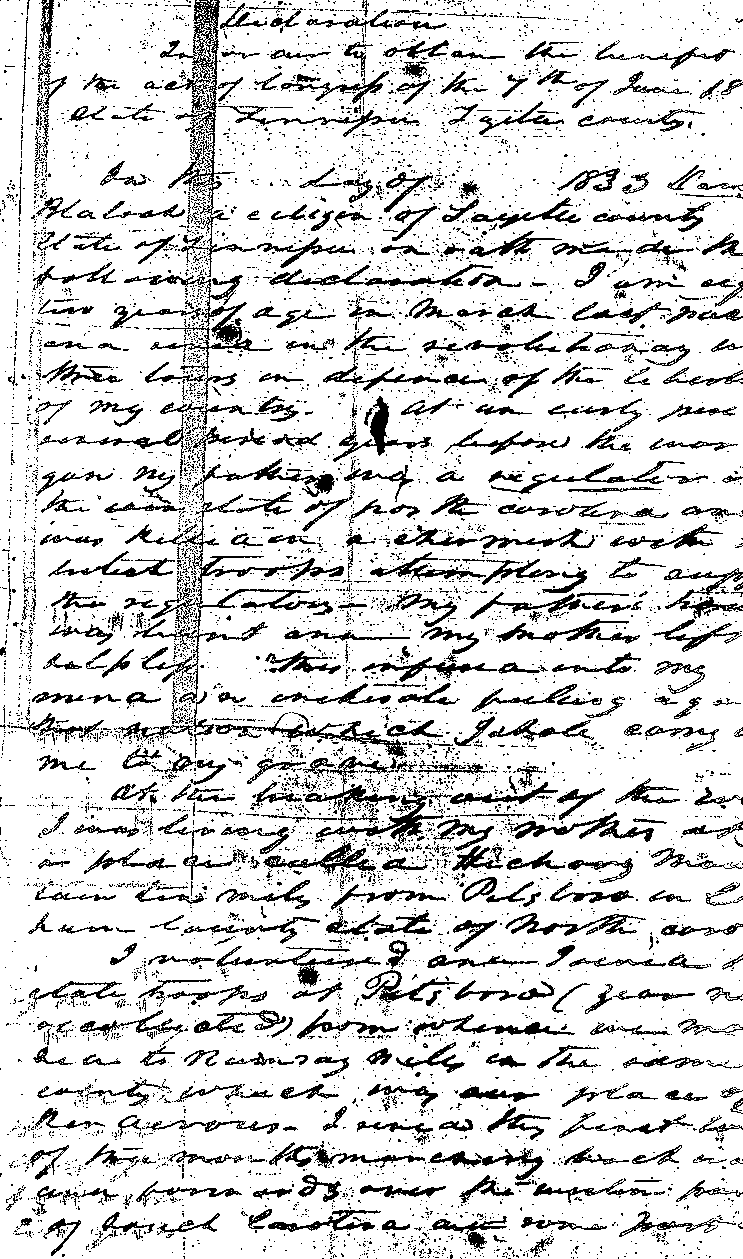 Declaration
In order to obtain the benefit
of the act of Congress of the 7th of June 18
State of Tennessee Fayette county.
On this day of 1833
a citizen of Fayette county
State of Tennessee on oath made th
following declaration - I am eig
two years of age in March last pas
and in the revolutionary w
three tours in defence of the libert
of my country. At an early per
several years before the war
gan my father was a regulator i
the state of north carolina an
was killed in a skirmish with
troops attempting to supp
the regulators - My father's hou
was burnt and my mother left
helpless. This infused into my
mind an feeling aga
that nation which I shall carry
me to my grave
At the breaking out of the
I was living with my mother at
a place called Hickory Mou
tain ten miles from Pitsboro in C
ham County state of North caro
I volunteered and Joined
state troops at Pitsboro (year n
recollected) from whence we ma
ed to Ramsay Mills in the same
county which was our place of
Ren I served this first to
of three months marching back
and forwards over the western par
of South Carolina and some part